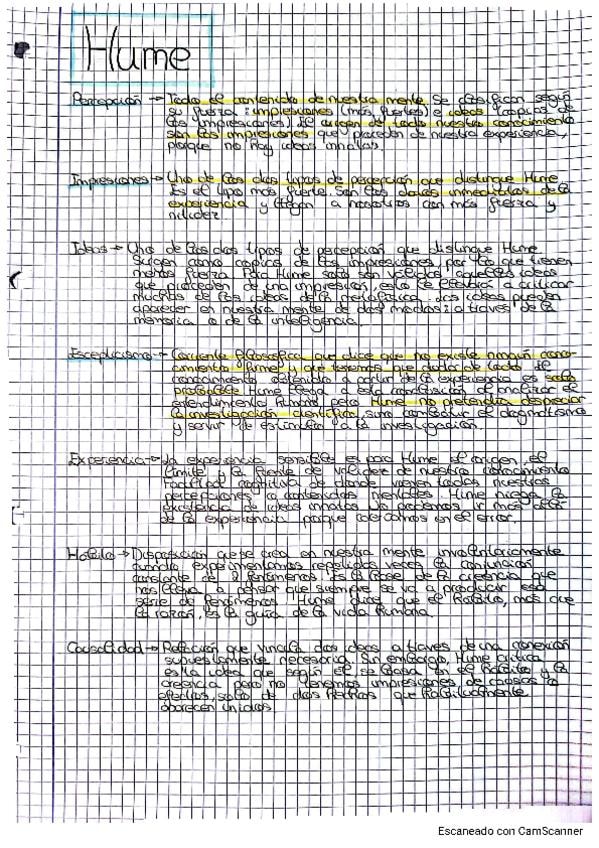 Hume
Percepción → Todo el contenido de nuestra mente. Se clasifican según
su fuerza: impresiones (más fuertes) e ideas (copias de
las impresiones). El origen de todo nuestro conocimiento
son las impresiones que proceden de nuestra experiencia,
porque no hay ideas innatas.
Impresiones → Uno de los dos tipos de percepción que distingue Hume
Es el tipo más fuerte, son los datos inmediatos de la
experiencia y llegan a nosotros con más fuerza y
nitidez
Ideas → Uno de los dos tipos de percepción que distingue Hume.
Surgen como copias de las impresiones, por lo que tienen
menos fuerza. Para Hume solo son válidas aquellas ideas
que proceden de una impresión, esto le llevará a criticar
muchas de las ideas de la metafísica. Las ideas pueden
aparecer en nuestra mente de dos modos: a través de la
memoria o de la inteligencia.
Escepticismo → Corriente filosófica que dice que no existe ningún cono-
cimiento firme y que tenemos que dudar de todo. El
conocimiento obtenido a partir de la experiencia es solo
probable. Hume llega a esta conclusión al analizar el
entendimiento humano, pero Hume no pretendía despreciar
la investigación científica, sino combatir el dogmatismo
y servir de estímulo a la investigación.
Experiencia → La experiencia sensible es para Hume el origen, el
límite y la fuente de validez de nuestro conocimiento
Facultad cognitiva de donde vienen todas nuestras
percepciones o contenidos mentales. Hume niega la
existencia de ideas innatas. No podemos ir más allá
de la experiencia porque caeríamos en el error.
Hábito → Disposición que se crea en nuestra mente involuntariamente
cuando experimentamos repetidas veces la conjunción
constante de 2 fenómenos. Es la base de la creencia que
nos lleva a pensar que siempre se va a producir esa
serie de fenómenos. Hume dice que el hábito, más que
la razón, es la guía de la vida humana.
Causalidad → Relación que vincula dos ideas a través de una conexión
supuestamente necesaria. Sin embargo, Hume critica
esta idea que según él se basa en el hábito y la
creencia pero no tenemos impresiones de causas o
efectos, solo de dos hechos que habitualmente
aparecen unidos.
Escaneado con CamScanner